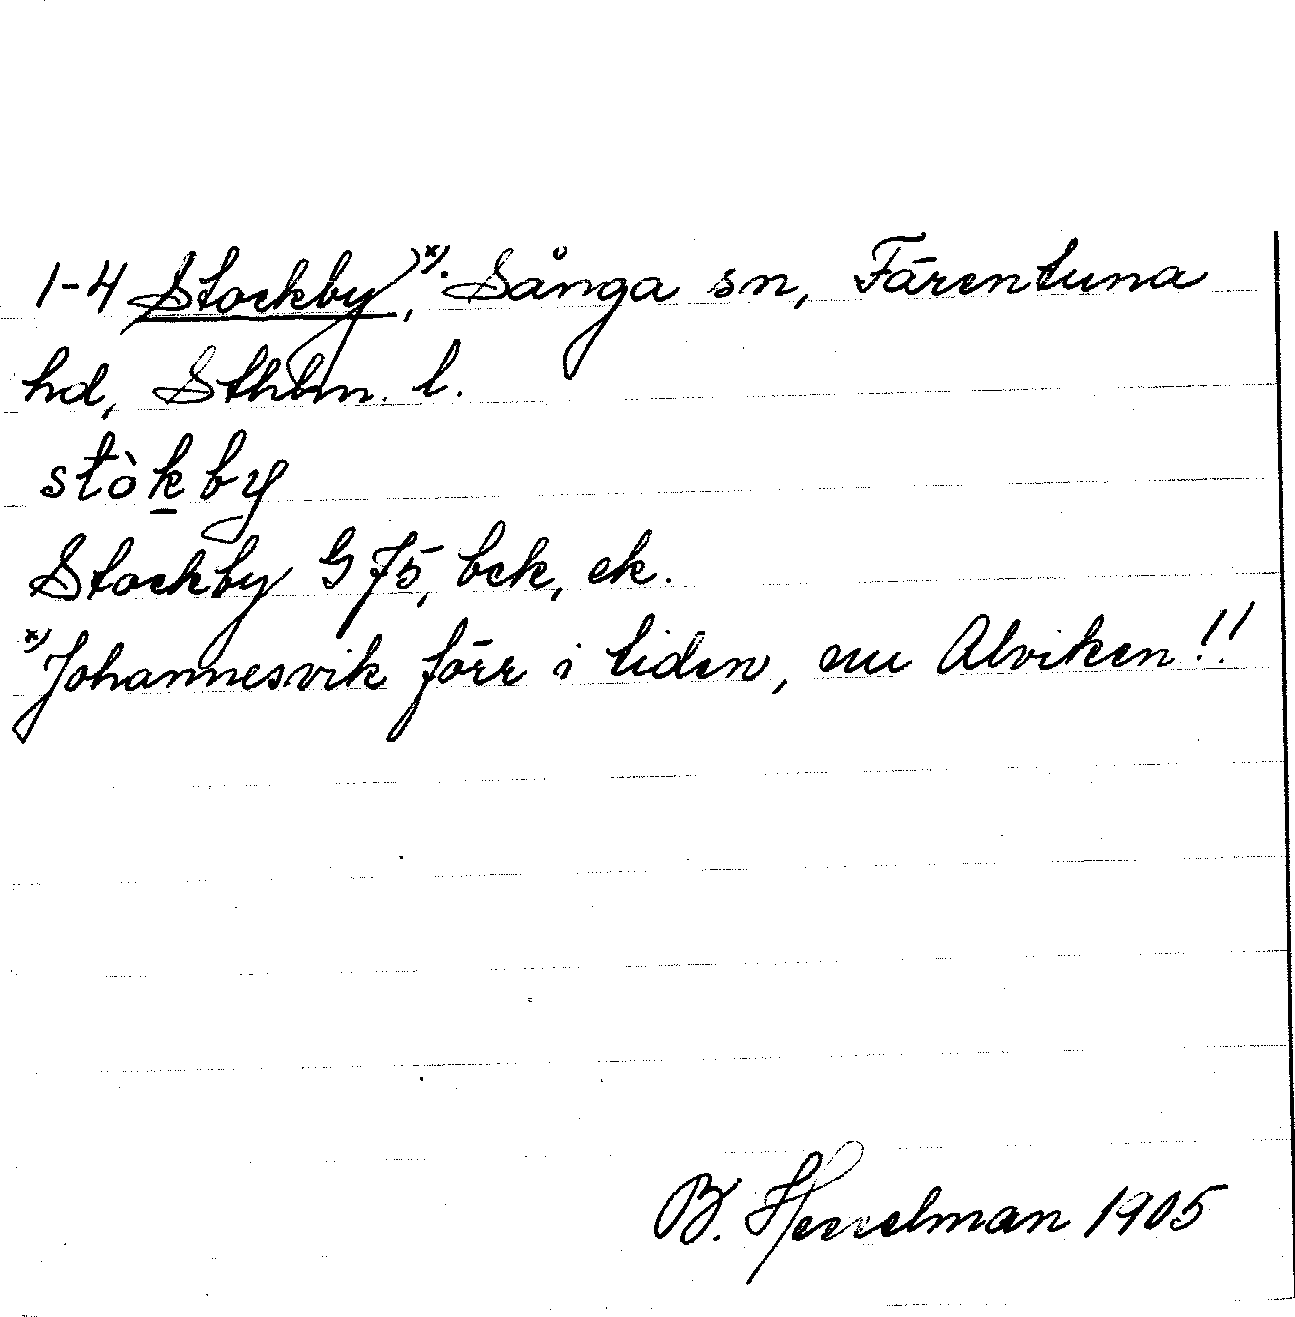 1-4 Stockby,ˣ⁾ Sånga sn, Färentuna
hd, Sthlm. l.
stòk̲by
Stockby G 75, bck, ek.
ˣ⁾Johannesvik förr i tiden, nu Alviken!!
B. Hesselman 1905